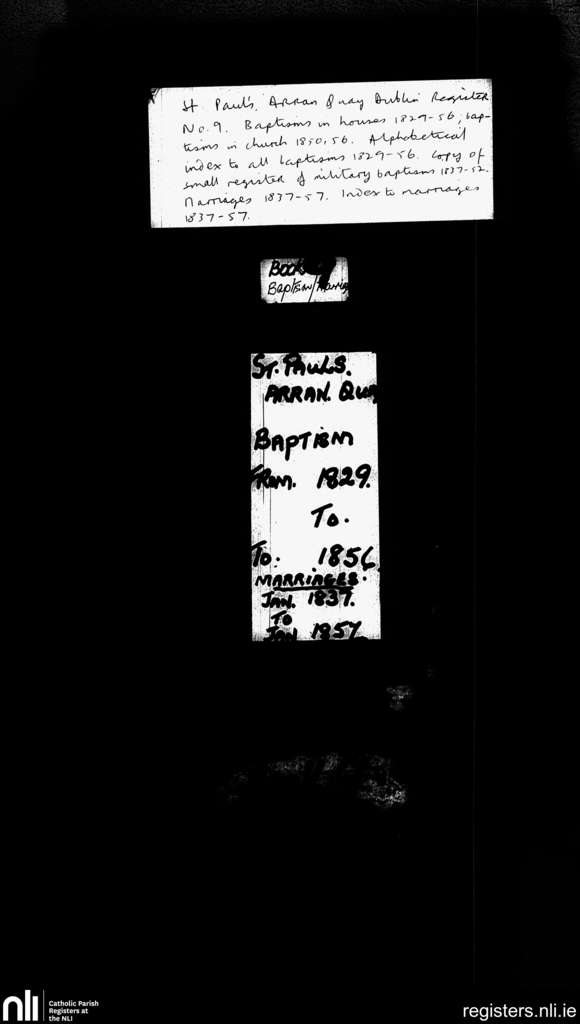 St Paul's, Arran Quay Dublin Register
No. 9. Baptisms in houses 1829-56; bap-
tisms in church 1850, 56. Alphabetical
index to all baptisms 1829-56. Copy of
small register of military baptisms 1837-52.
Marriages 1837-57. Index to marriages
1837-57.
BOOK
Baptism/Marriag
ST. PAULS.
ARRAN. QUA
BAPTISM
FROM. 1829.
To.
To. 1856.
MARRIAGES.
JAN. 1837.
TO
JAN 1857
nli
Catholic Parish
Registers at
the NLI
registers.nli.ie